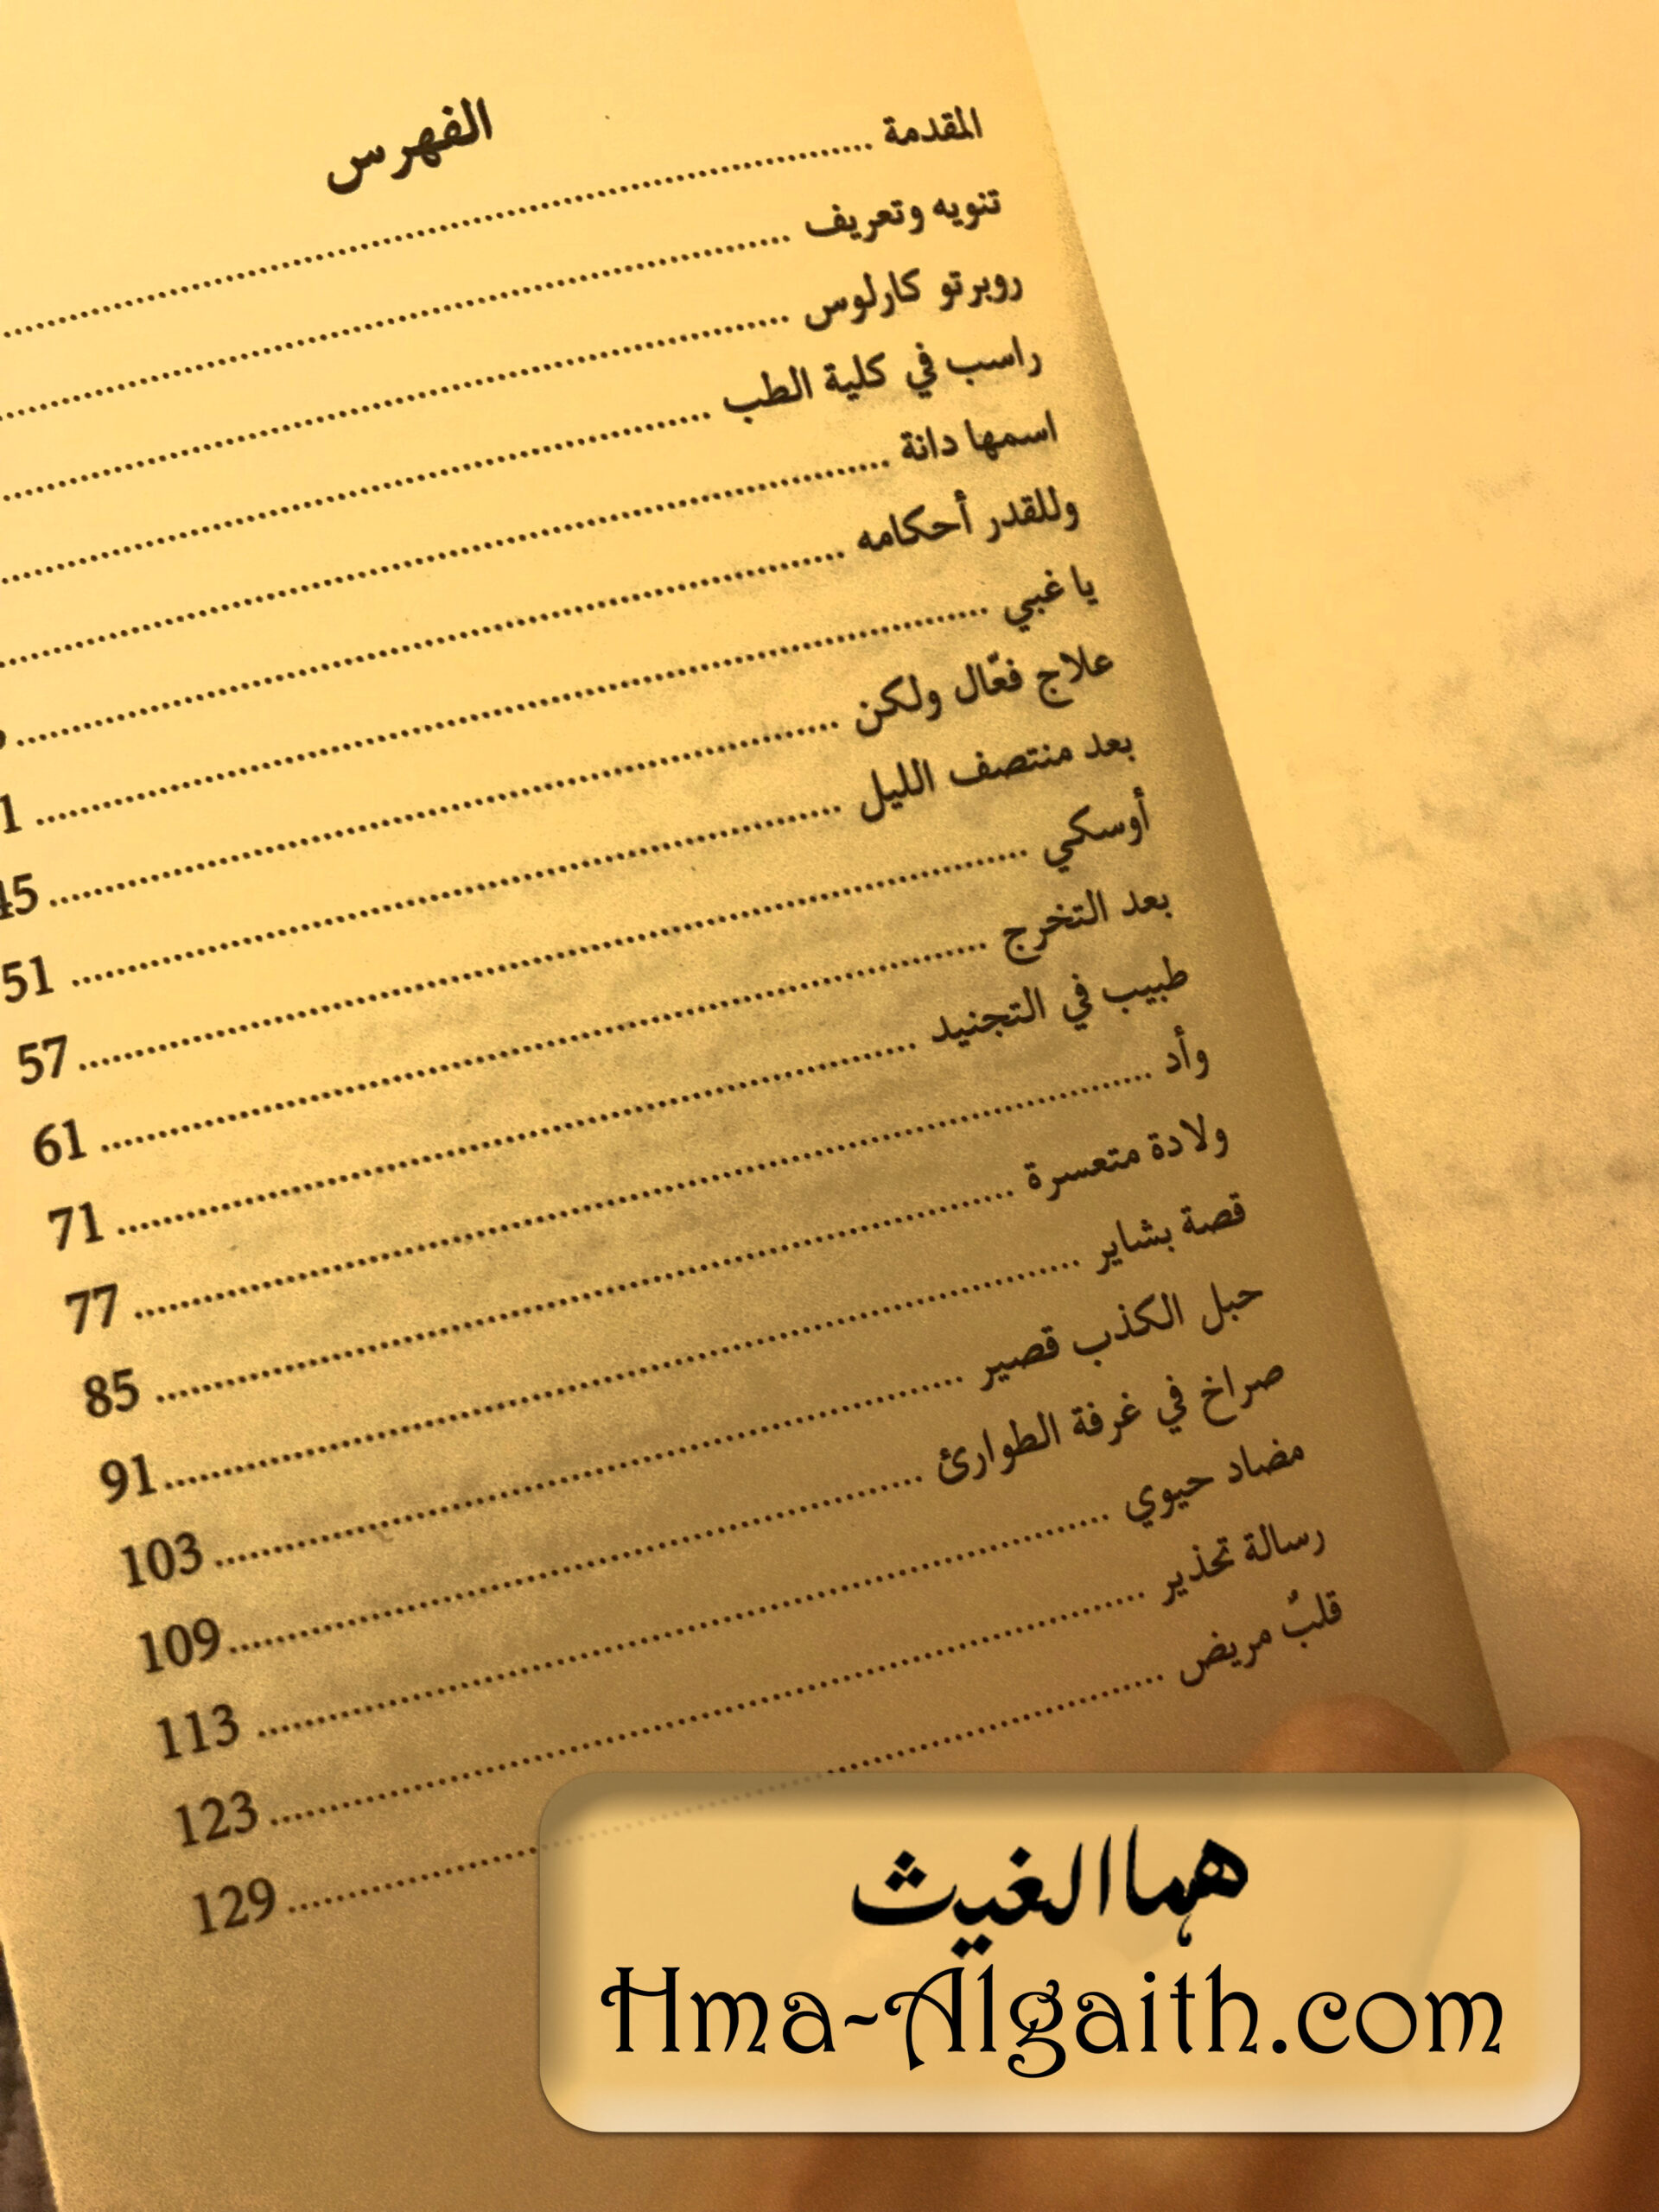 الفهرس
المقدمة ........................
تنويه وتعريف ........................
روبرتو كارلوس ........................
راسب في كلية الطب ........................
اسمها دانة ........................
وللقدر أحكامه ........................
يا غبي ........................
علاج فعّال ولكن ........................ 45
بعد منتصف الليل ........................ 51
أوسكي ........................ 57
بعد التخرج ........................ 61
طبيب في التجنيد ........................ 71
وأد ........................ 77
ولادة متعسرة ........................ 85
قصة بشاير ........................ 91
حبل الكذب قصير ........................ 103
صراخ في غرفة الطوارئ ........................ 109
مضاد حيوي ........................ 113
رسالة تحذير ........................ 123
قلبٌ مريض ........................ 129
هما الغيث
Hma-Algaith.com